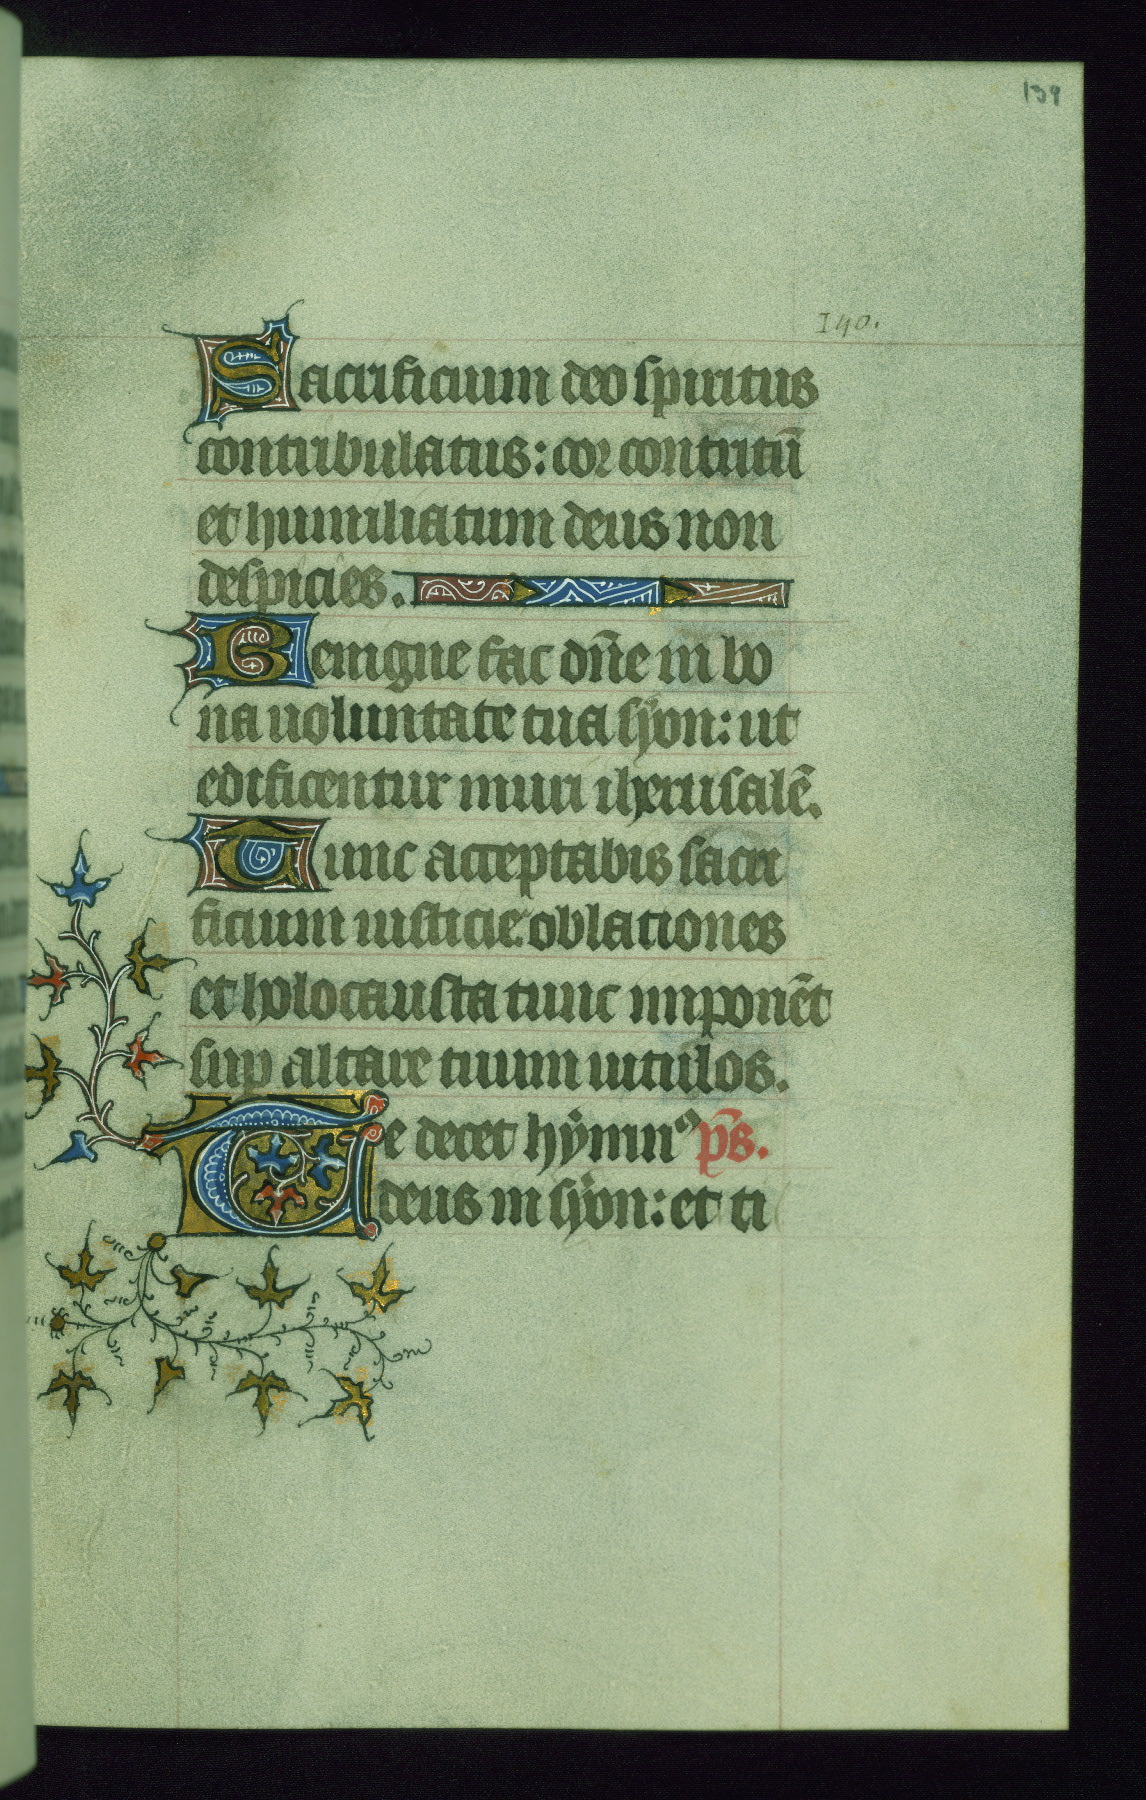 139
140.
Sacrificium deo spiritus
contribulatus: cor contritū
et humiliatum deus non
despicies.
Benigne fac dn̄e in bo
na uoluntate tua sẏon: ut
edificentur muri iherusalē.
Tunc acceptabis sacri
ficium iusticie: oblationes
et holocausta tunc imponēt
sup altare tuum uitulos.
Te decet hẏmnꝰ p̄s.
deus in sẏon: et ti